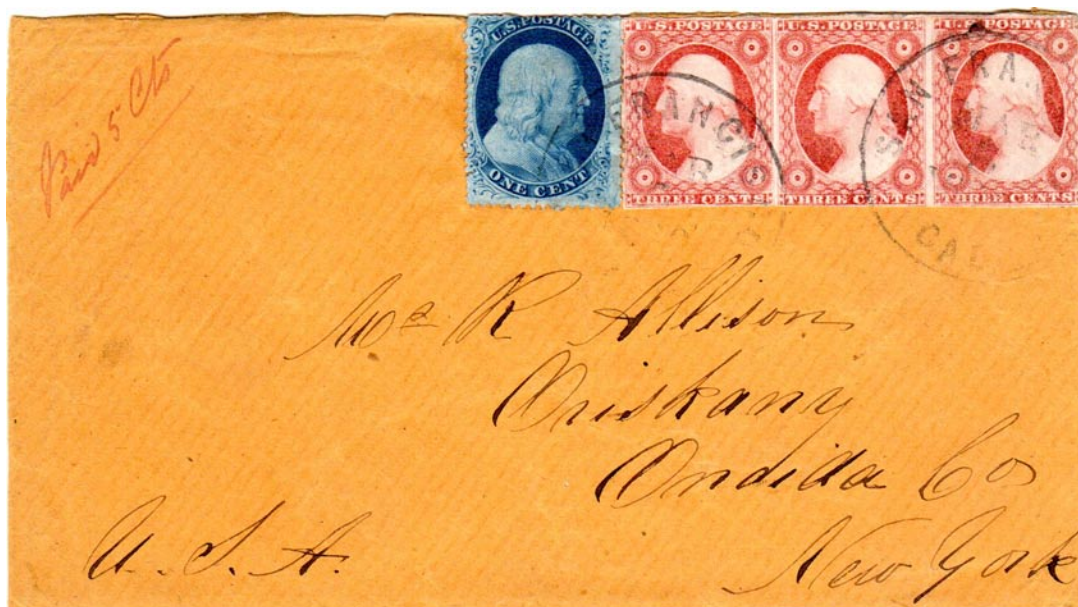 Paid 5 Cts
U.S. POSTAGE
ONE CENT
U.S. POSTAGE
THREE CENTS
U.S. POSTAGE
THREE CENTS
U.S. POSTAGE
THREE CENTS
FRANCI
SAN FRA
MAR
CAL
R Allison
Oriskany
Ondida Co
New York
U. S. A.